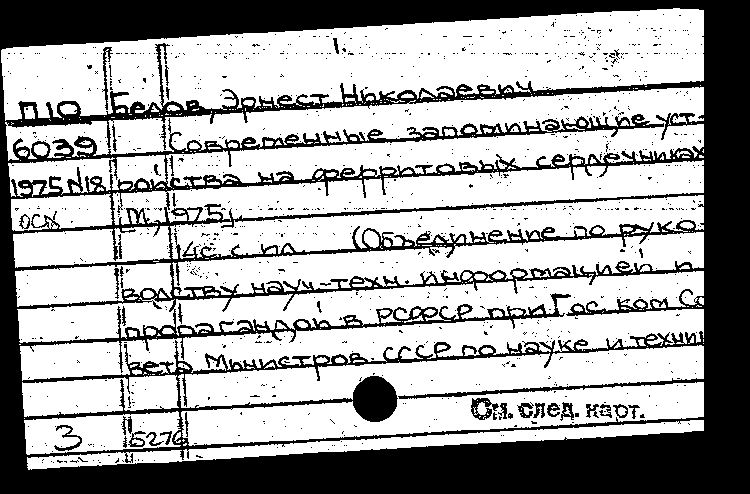 1.
П10 Белов, Эрнест Николаевич
6039 Современные запоминающие уст-
1975 N18 ройства на ферритовых сердечниках
осх М., 1975.
14с. с ил. (Объединение по руко-
водству науч.-техн. информацией и
пропагандой в РСФСР при Гос. ком. Со
вета Министров СССР по науке и техни
См. след. карт.
3 5276